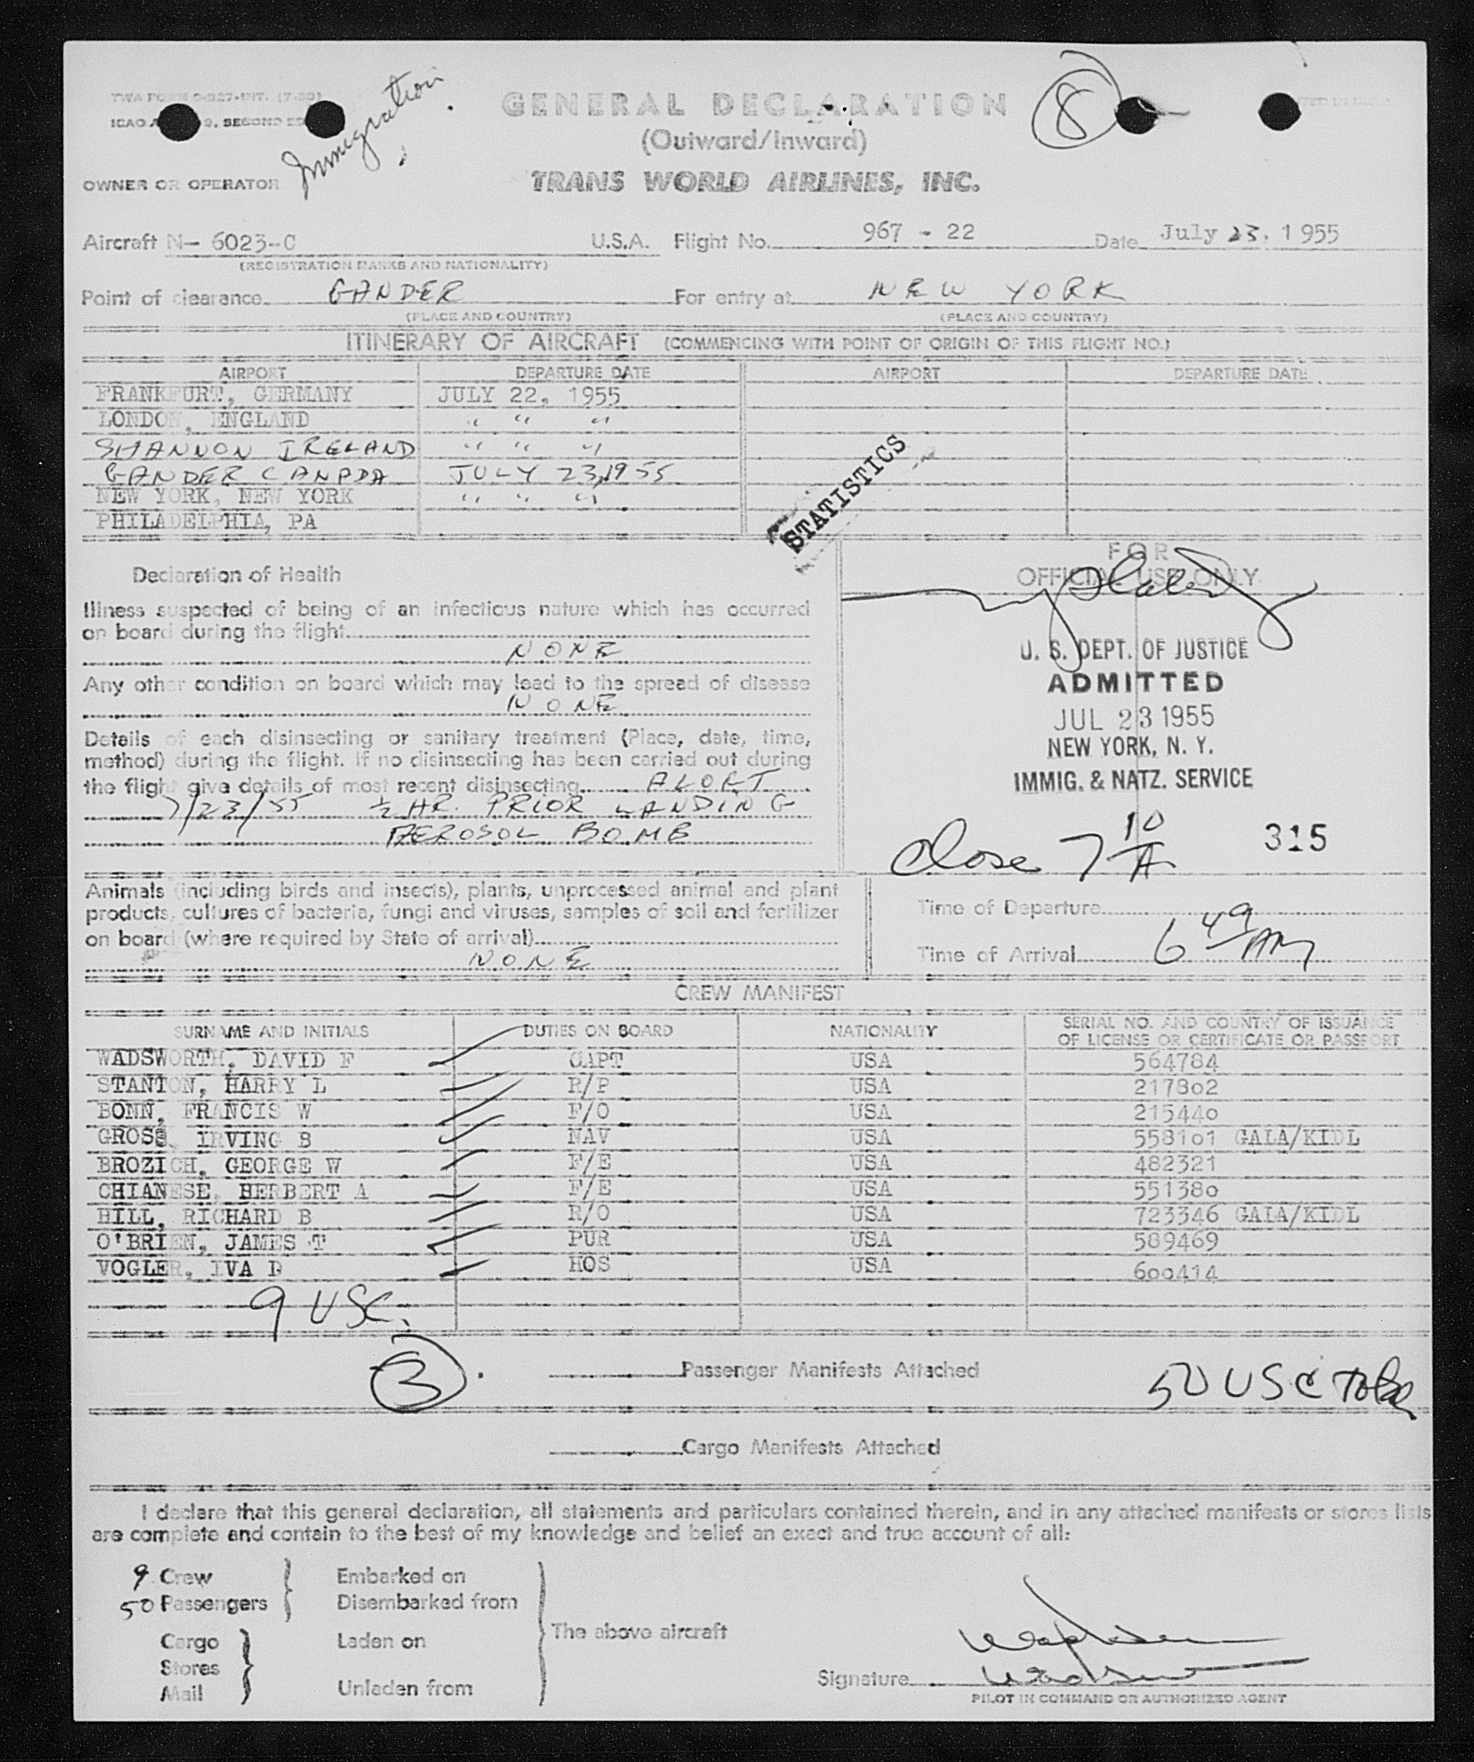 TWA FORM
Immigration
GENERAL DECLARATION
8
ICAO 9, SECOND
(Outward/Inward)
OWNER OR OPERATOR
TRANS WORLD AIRLINES, INC.
Aircraft N- 6023-C U.S.A. Flight No. 967 - 22 Date July 23, 1955
(REGISTRATION MARKS AND NATIONALITY)
Point of clearance GANDER For entry at NEW YORK
(PLACE AND COUNTRY) (PLACE AND COUNTRY)
ITINERARY OF AIRCRAFT (COMMENCING WITH POINT OF ORIGIN OF THIS FLIGHT NO.)
AIRPORT DEPARTURE DATE AIRPORT DEPARTURE DATE
FRANKFURT, GERMANY JULY 22, 1955
LONDON, ENGLAND " " "
SHANNON IRELAND " " "
GANDER CANADA JULY 23, 1955
NEW YORK, NEW YORK " " "
PHILADELPHIA, PA
STATISTICS
FOR
OFFICIAL USE ONLY
Declaration of Health
Illness suspected of being of an infectious nature which has occurred
on board during the flight
NONE
Any other condition on board which may lead to the spread of disease
NONE
Details of each disinsecting or sanitary treatment (Place, date, time,
method) during the flight. If no disinsecting has been carried out during
the flight give details of most recent disinsecting ALOFT
7/23/55 ½ HR. PRIOR LANDING
AEROSOL BOMB
U. S. DEPT. OF JUSTICE
ADMITTED
JUL 23 1955
NEW YORK, N. Y.
IMMIG. & NATZ. SERVICE
Close 7 10/A 315
Animals (including birds and insects), plants, unprocessed animal and plant
products, cultures of bacteria, fungi and viruses, samples of soil and fertilizer
on board (where required by State of arrival)
NONE
Time of Departure
Time of Arrival 6 49/AM
CREW MANIFEST
SURNAME AND INITIALS DUTIES ON BOARD NATIONALITY SERIAL NO. AND COUNTRY OF ISSUANCE
OF LICENSE OR CERTIFICATE OR PASSPORT
WADSWORTH, DAVID F CAPT USA 564784
STANTON, HARRY L R/P USA 217802
BONN, FRANCIS W F/O USA 215440
GROSS, IRVING B NAV USA 558101 GALA/KIDL
BROZICH, GEORGE W F/E USA 482321
CHIANESE, HERBERT A F/E USA 551380
HILL, RICHARD B R/O USA 723346 GALA/KIDL
O'BRIEN, JAMES T PUR USA 589469
VOGLER, IVA D HOS USA 600414
9 USC.
3 Passenger Manifests Attached 50 USC
Cargo Manifests Attached
I declare that this general declaration, all statements and particulars contained therein, and in any attached manifests or stores lists
are complete and contain to the best of my knowledge and belief an exact and true account of all:
9 Crew Embarked on
50 Passengers Disembarked from
The above aircraft
Cargo Laden on
Stores
Mail Unladen from
Signature
PILOT IN COMMAND OR AUTHORIZED AGENT